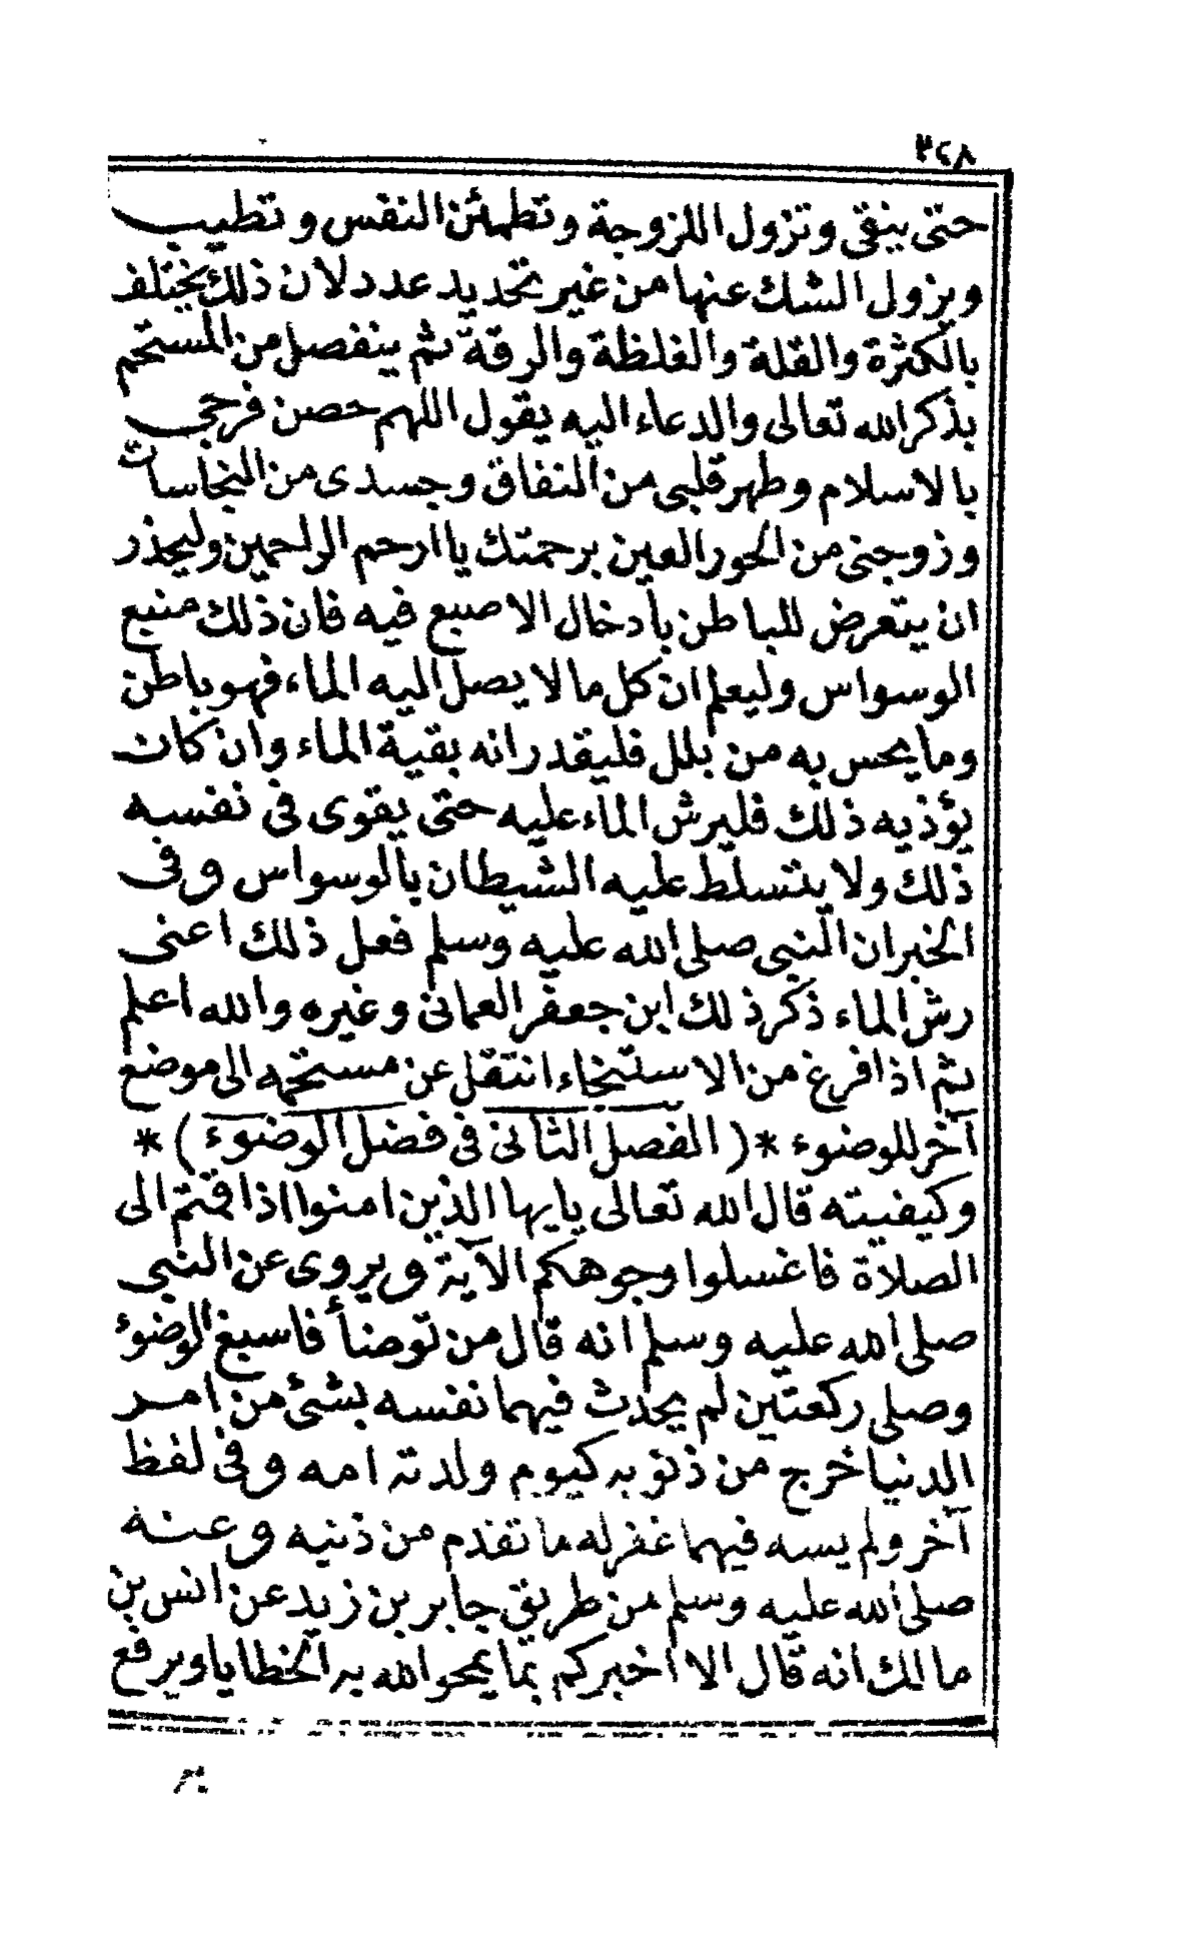 ٣٤٨
حتى ينقى وتزول اللزوجة وتطمئن النفس وتطيب
ويزول الشك عنها من غير تحديد عدد لان ذلك يختلف
بالكثرة والقلة والغلظة والرقة ثم ينفصل من المستحم
بذكر الله تعالى والدعاء اليه يقول اللهم حصن فرجى
بالاسلام وطهر قلبى من النفاق وجسدى من النجاسات
وزوجنى من الحور العين برحمتك يا ارحم الراحمين وليحذر
ان يتعرض للباطن بادخال الاصبع فيه فان ذلك منبع
الوسواس وليعلم ان كل ما لا يصل اليه الماء فهو باطن
وما يحس به من بلل فليقدر انه بقية الماء وان كان
يؤذيه ذلك فليرش الماء عليه حتى يقوى فى نفسه
ذلك ولا يتسلط عليه الشيطان بالوسواس وفى
الخبر ان النبى صلى الله عليه وسلم فعل ذلك اعنى
رش الماء ذكر ذلك ابن جعفر العمانى وغيره والله اعلم
ثم اذا فرغ من الاستنجاء انتقل عن مستحمه الى موضع
آخر للوضوء * ( الفصل الثانى فى فضل الوضوء ) *
وكيفيته قال الله تعالى يايها الذين امنوا اذا قمتم الى
الصلاة فاغسلوا وجوهكم الآية ويروى عن النبى
صلى الله عليه وسلم انه قال من توضأ فاسبغ الوضوء
وصلى ركعتين لم يحدث فيهما نفسه بشئ من امر
الدنيا خرج من ذنوبه كيوم ولدته امه وفى لفظ
آخر ولم يسه فيهما غفر له ما تقدم من ذنبه وعنه
صلى الله عليه وسلم من طريق جابر بن زيد عن انس بن
مالك انه قال الا اخبركم بما يمحو الله به الخطايا ويرفع
به